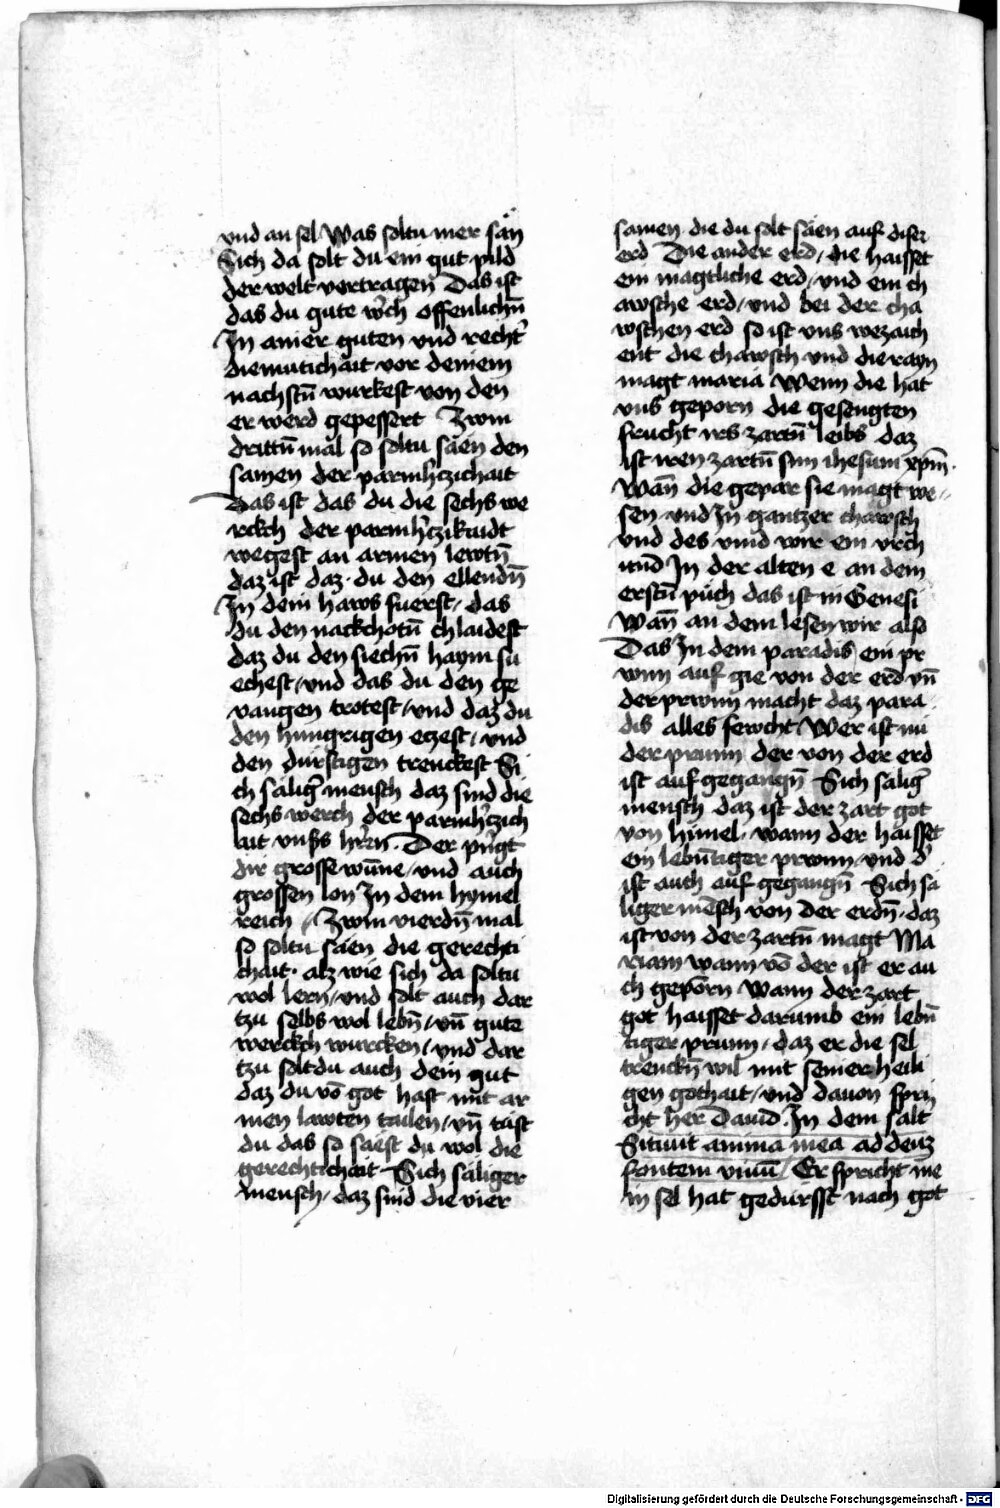 vnd an sel Was soltu mer sän
Sich da solt du ein gut pild
der welt vortragen Das ist
das du gute w̓ch offenlichn̄
In ainer guten vnd recht̓
diemutichait vor deinem
nachstn̄ wurkest von den
er werd gepessert Zwm
drittn̄ mal so soltu säen den
samen der parmh̓czichait
Das ist das du die sechs we
rckch der parmh̓czikaidt
wegest an armen lewtn̄
daz ist daz du den ellendn̄
In dein haws fuerst / das
du den nackchotn̄ chlaidest
daz du den siechn̄ haym su
echest / vnd das du den ge
vangen trotest / vnd daz du
den hungrigen eczest / vnd
den dürstigen trenckest Si
ch sälig̓ mensch daz sind die
sechs werch der parmh̓czich
ait vnsꝭs hr̓en. Der pn̓gt
dir grosse wūne / vnd auch
grossen lon In dem hymel
reich / Zwm vierdn̄ mal
so soltu säen die gerechti
chait. alz wie sich da soltu
wol lern̄ / vnd solt auch dar
tzu selbs wol lebn̄ / vn̄ gute
werckch wurcken / vnd dar
tzu solt du auch dein gut
daz du vō got hast mit ar
men lawten tailen / vn̄ täst
du das so säest du wol die
gerechtichait Sich säliger
mensch / daz sind die vier
samen die du solt säen auf diser
erd Die ander erd / die haisset
ein magtliche erd / vnd ein ch
awsche erd / vnd bei der cha
wschen erd so ist vns wezaich
ent die chawsch vnd die rayn
magt maria Wenn die hat
vns geporn die gesengten
frucht irs zartn̄ leibs daz
ist iren zartn̄ sun ihesum xpm̄.
Wān die gepar sie magt we
sen vnd In gantzer chawsch
vnd des vind wir ein vrch
und In der alten e an dem
erstn̄ püch das ist in Genesi
Wān an dem lesen wir also
Das In dem paradis ein pr
wnn auf gie von der erd vn̄
der prwnn macht daz para
dis alles fewcht / Wer ist nu
der prunn der von der erd
ist auf gegangn̄ Sich sälig̓
mensch daz ist der zart got
von himel. wann der haisset
ein lebn̄tiger prwnn / vnd d̓
ist auch auf gegangn̄ Sich sä
liger mēsch von der erdn̄. daz
ist von der zartn̄ magt Ma
riam wann vō der ist er au
ch geporn Wann der zart
got haisset darumb ein lebn̄
tiger prunn / daz er die sel
trenckn̄ wil mit seiner heili
gen gothait / vnd dauon spri
cht her Dauid. In dem salt
Sitiuit anima mea ad deuꝫ
fontem viuū / Er spricht me
in sel hat gedürsst nach got
Digitalisierung gefördert durch die Deutsche Forschungsgemeinschaft - DFG